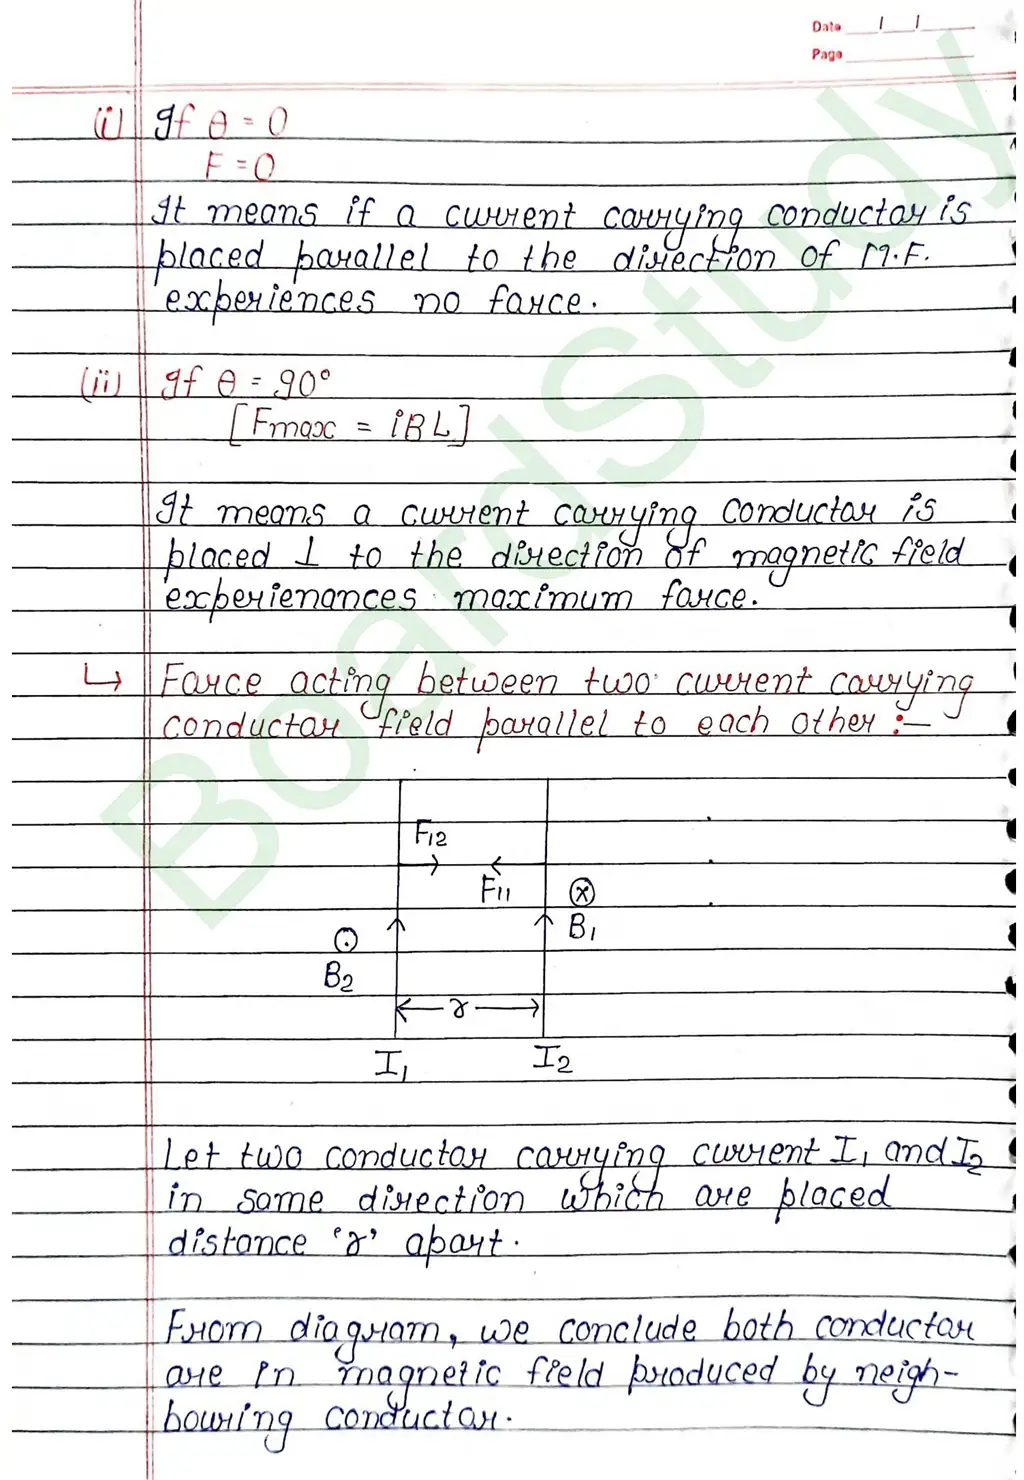 Date / /
Page
(i) If θ = 0
F = 0
It means if a current carrying conductor is
placed parallel to the direction of M.F.
experiences no force.
(ii) If θ = 90°
[Fmax = iBL]
It means a current carrying conductor is
placed ⊥ to the direction of magnetic field
experienances maximum force.
↳ Force acting between two current carrying
conductor field parallel to each other :-
F12
F11 ⊗
B1
⊙
B2
r
I1 I2
Let two conductor carrying current I1 and I2
in same direction which are placed
distance 'r' apart.
From diagram, we conclude both conductor
are in magnetic field produced by neigh-
bouring conductor.
BoardStudy